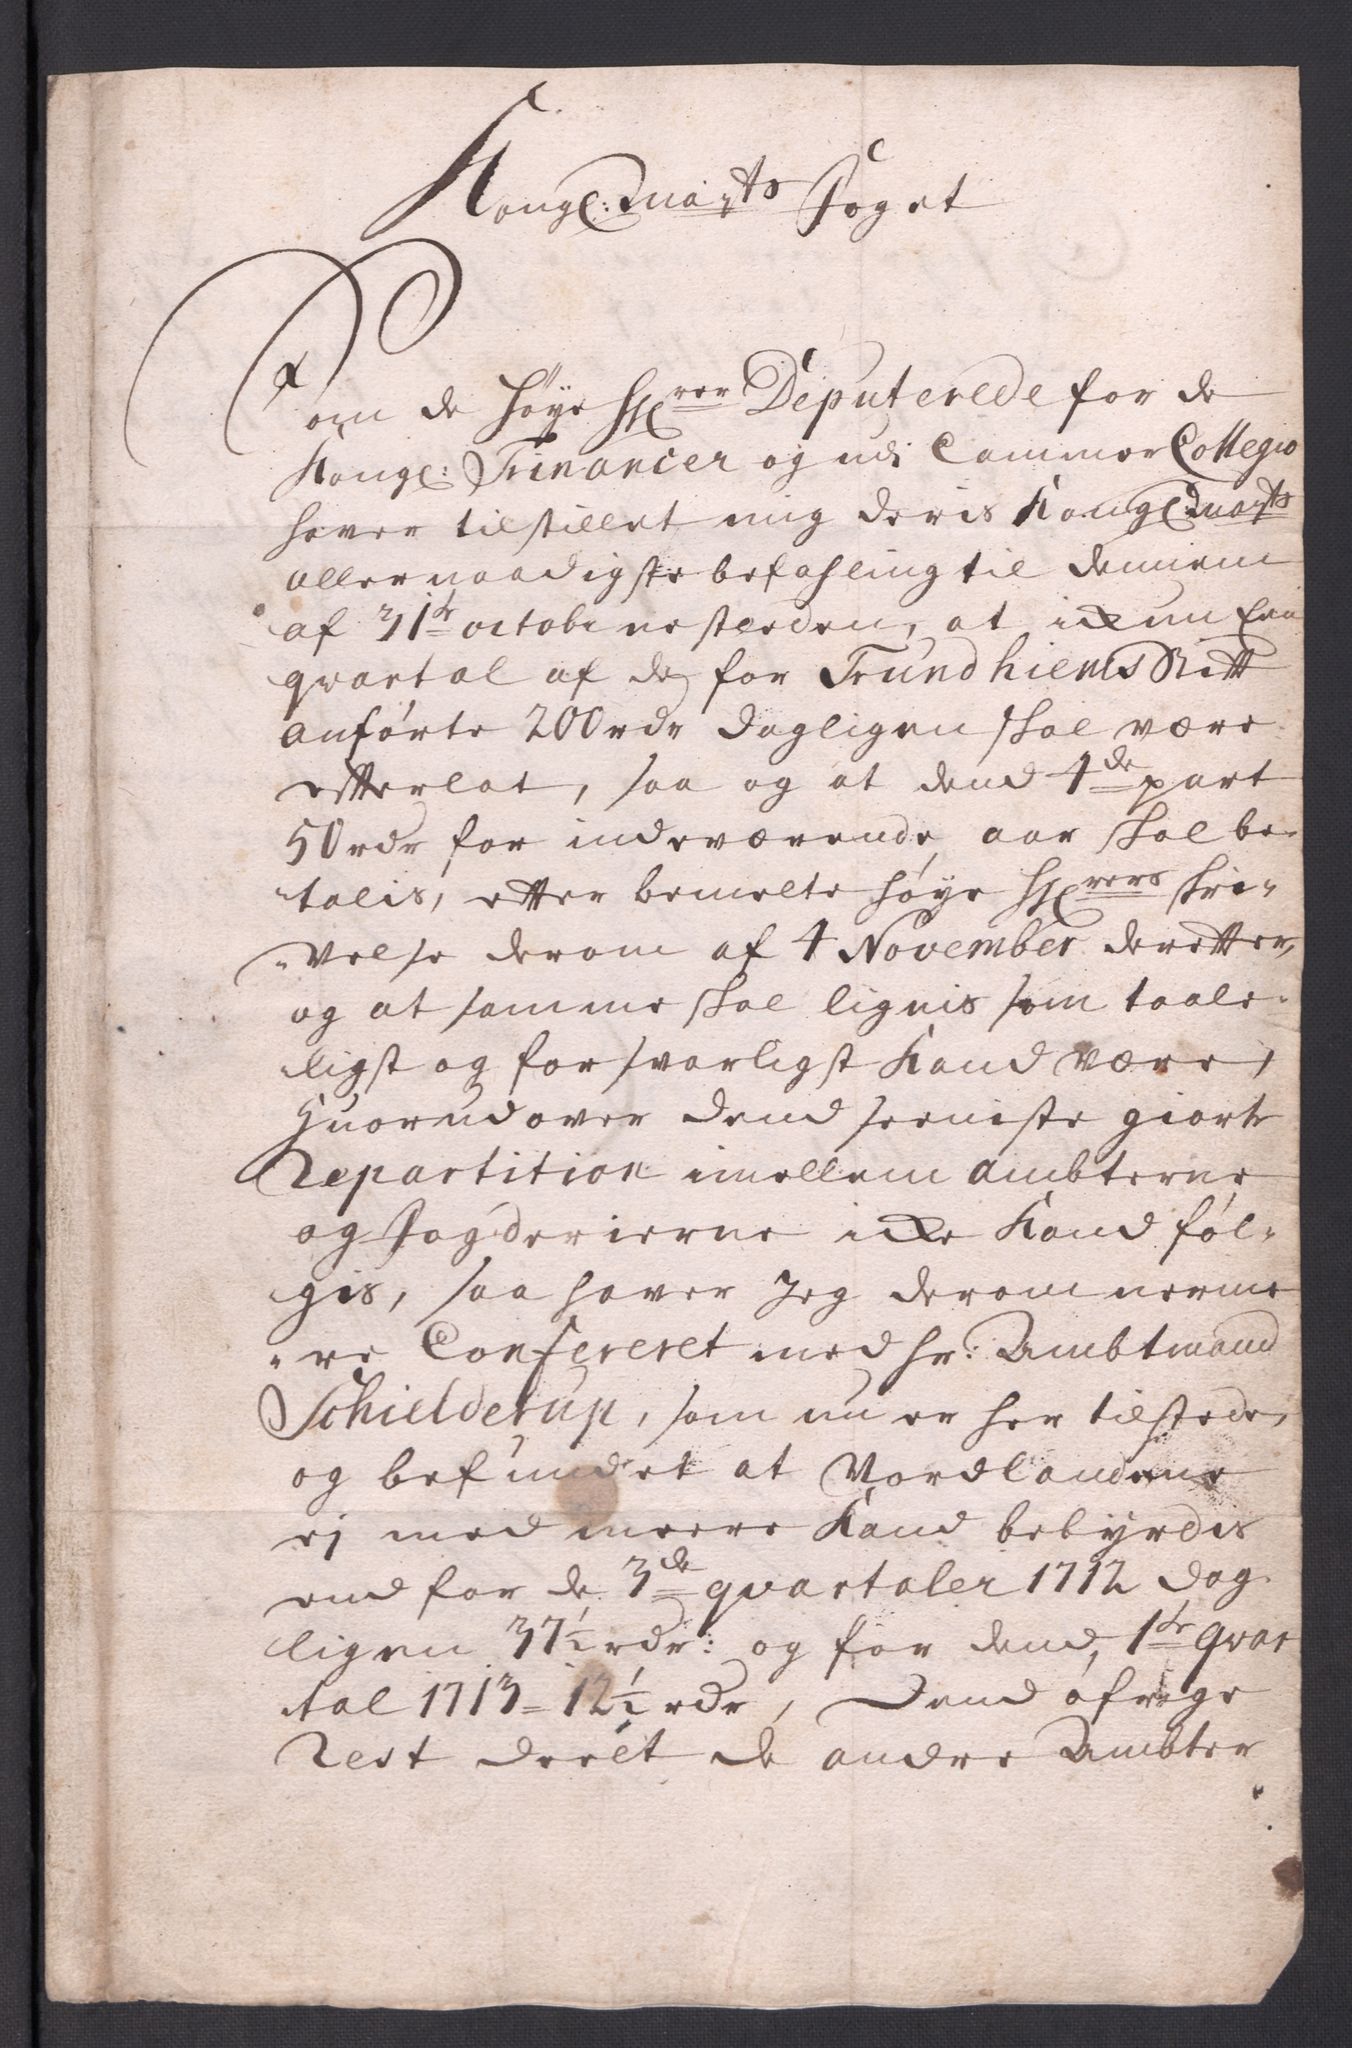 Kongl: Mayts Foget
Som de Høye Herrer Deputerede for de
Kongl: Financer og udi Cammer Collegio
haver tilstillet mig deris Kongl: Mayts
allernaadigste befahling til dennem
af 31te octobr nestleeden, at ickun Een
qvartal af de for Trundhiems Stift
anførte 200 rdr dagligen skal være
efterlat, saa og at dend 4de part
50 rdr for indeværende aar skal be-
talis, efter bemelte høye Herrers skri-
velse derom af 4 November derefter,
og at samme skal lignis som taale-
ligst og forsvarligst kand være,
Huorudover dend seeniste giorte
Repartition imellem Ambterne
og Fogderierne icke kand føl-
gis, saa haver Jeg derom nerme-
re Confereret med hr: Ambtmand
Schielderup, som nu er her tilstede,
og befundet at Nordlandene
ej med meere kand bebyrdes
end for de 3de qvartaler 1712 dag
ligen 37½ rdr: og for dend 1ste qvar
tal 1713 = 12½ rdr, Dend øfrige
Rest deelt de andre Ambter